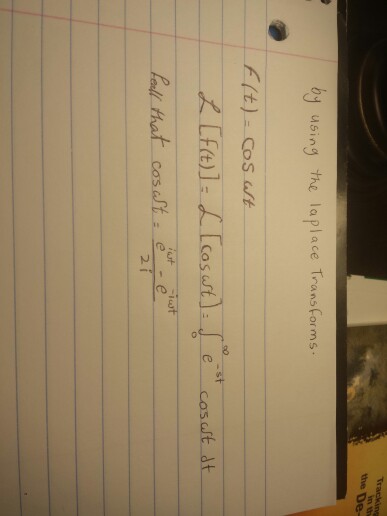 by using the laplace Transforms.
F(t) = cos wt
L [f(t)] = L [cos wt] = ∫₀^∞ e^-st cos wt dt
Recall that cos wt = (e^iwt - e^-iwt)/2i
Tracking
in th
the De-